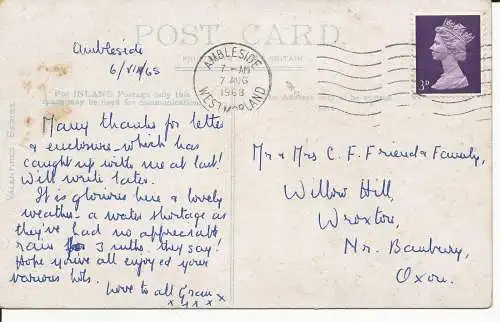 POST CARD
Ambleside
6/VIII/68
AMBLESIDE
7-AM
7 AUG
1968
WESTMORLAND
3D
For INLAND Postage only this
may be used for communication
the Address only to be
VALENTINES SERIES
Many thanks for letter
& enclosure - which has
caught up with me at last!
Will write later.
It is glorious here & lovely
weather - a water shortage as
they've had no appreciable
rain for 3 mths, they say!
Hope you've all enjoyed your
various hols.
Love to all Gran x
x x x x
Mr & Mrs C. F. Friend & Family,
Willow Hill,
Wroxton,
Nr. Banbury,
Oxon.